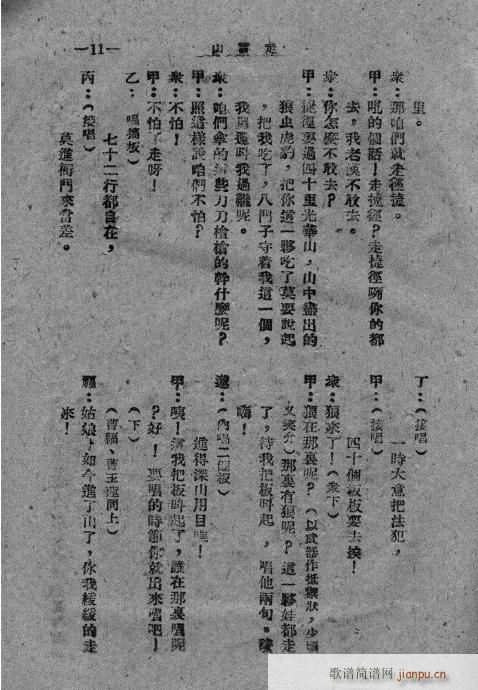 —11—
走雪山
里。
衆：那咱們就走徑捷。
甲：吭的個話！走捷徑？走捷徑喲你的都
去，我老漢不敢去。
衆：你怎麽不敢去？
甲：捷徑要過四十里光華山，山中盡出的
狼虫虎豹，把你這一夥吃了莫要說起
，把我吃了，八門子守着我這一個，
我與誰呌我過繼呢。
衆：咱們拿的這些刀刀槍槍的幹什麽呢？
甲：照這樣說咱們不怕？
衆：不怕！
甲：不怕了走呀！
乙：（唱搖板）
七十二行都自在，
丙：（接唱）
莫進衙門來當差。
丁：（接唱）
一時大意把法犯，
甲：（接唱）
四十個板板要去挨！
衆：狼來了！（衆下）
甲：狼在那裏呢？（以武器作抵禦狀，少頃
又笑介）那裏有狼呢？這一夥娃都走
了，待我把板呌起，唱他兩句。
嗨！
（內唱二倒板）
進得深山用目
甲：咦！ 我把板呌起了，誰在那裏唱呢
？好！要唱的時節你就出來唱吧！
（下）
（曹福、曹玉蓮同上）
福：姑娘，如今進了山了，你我緩緩的走
來！
歌谱简谱网
jianpu.cn